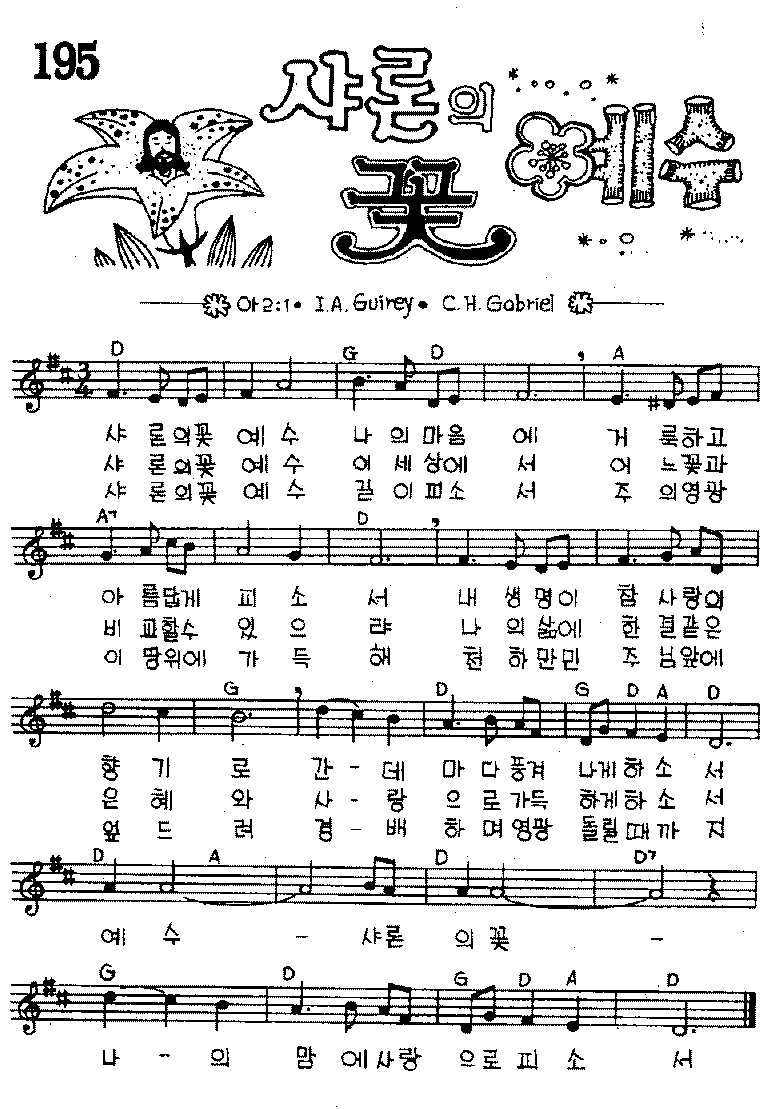 195
샤론의
꽃 예수
아2:1• I.A. Guirey• C.H. Gabriel
D G D A
3
4
샤 론의꽃 예 수 나 의마음 에 거 룩하고
샤 론의꽃 예 수 이 세상에 서 어 느꽃과
샤 론의꽃 예 수 길 이피소 서 주 의영광
A7 D
아 름답게 피 소 서 내 생명이 참 사랑의
비 교할수 있 으 랴 나 의삶에 한 결같은
이 땅위에 가 득 해 천 하만민 주 님앞에
G D G D A D
향 기 로 간 - 데 마 다풍겨 나게하 소 서
은 혜 와 사 - 랑 으 로가득 하게하 소 서
엎 드 려 경 - 배 하 며영광 돌릴때까 지
D A D D7
예 수 - 샤론 의 꽃 -
G D G D A D
나 - 의 맘 에사랑 으로피 소 서